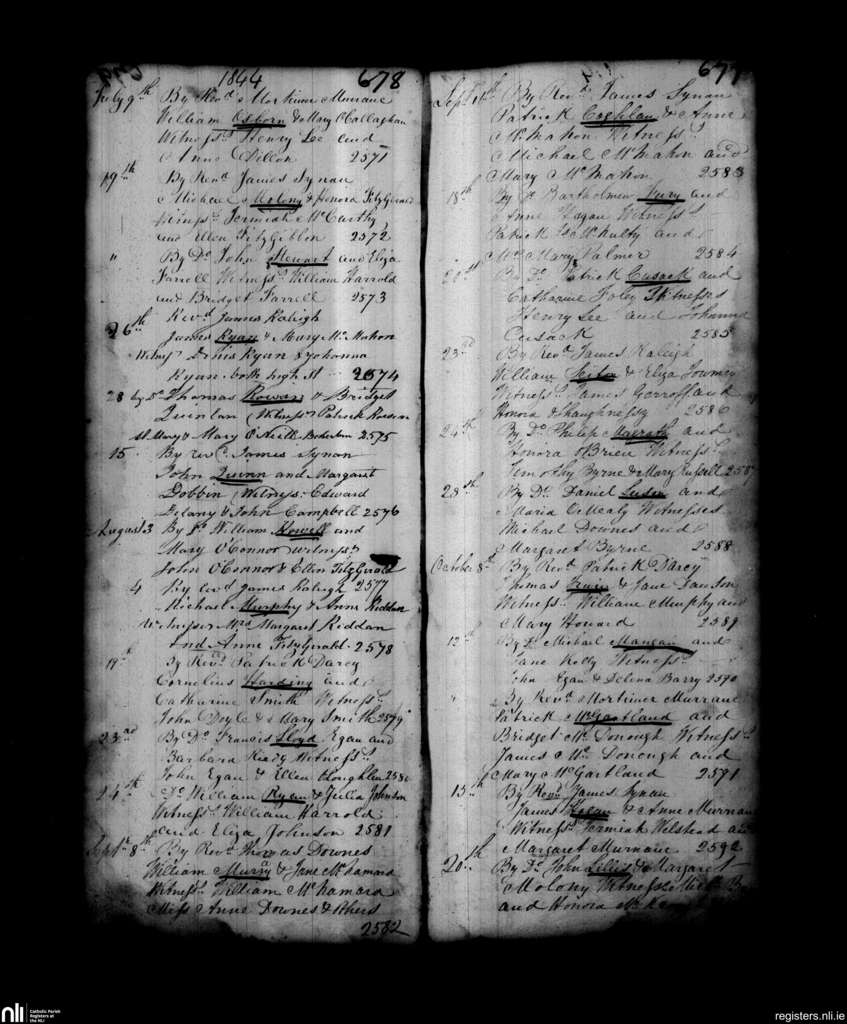 1844 678
July 9th By Revd Mortimer Murnane
William Osborn & Mary O'Callaghan
Witnesss. Henry Lee and
Anne Dillon 2571
19th By Revd James Synan
Michael Molony & Honora FitzGerald
Witnesss. Jermiah McCarthy
and Ellen FitzGibbin 2572
" By Do. John Stewart and Eliza
Farrell Witnesss. William Harrold
and Bridget Farrell 2573
Revd James Raleigh
26th
James Ryan & Mary Mc Mahon
Witness Denis Ryan & Johanna
Ryan both high St 2574
28 by Do Thomas Rowan & Bridget
Quinlan (Witnesses Patrick
St. Mary & Mary O'Neill 2575
15 By rev C. James Synan
John Quinn and Margaret
Dobbin (Witness. Edward
Delany & John Campbell 2576
August 3 By Do William Howell and
Mary O'Connor Witnesss.
John O'Connor & Ellen FitzGerald
4 By Revd James Raleigh 2577
Michael Murphy & Anne Riddan
Witnesses Mrs Margaret Riddan
and Anne FitzGerald. 2578
19th By Revd Patrick Darcy
Cornelius Harding and
Catharine Smith Witnesss.
John Doyle & Mary Smith 2579
23rd By Do Francis Lloyd Egan and
Barbara Witnesss.
John Egan & Ellen 2580
24th Do William Ryan & Julia Johnson
Witnesss. William Harrold
and Eliza Johnson 2581
Septr 8th By Revd Thomas Downes
William Murry & Jane McNamara
Witnesss. William McNamara
Miss Anne Downes & Others
2582
Septr By Revd James Synan
Patrick Coghlan & Anne
McMahon Witnesss.
Michael McMahon and
Mary McMahon 2583
18th By Do Bartholmew and
Anne Witnesss.
Patrick McNulty and
Mrs Mary Palmer 2584
20th By Do Patrick Cusack and
Catharine Foley Witnesses
Henry Lee and Johanna
Cusack 2585
23rd By Revd James Raleigh
William Sexton & Eliza
Witnesss. James and
Honora Shaughnessy 2586
24th By Do Philip Magrath and
Honora O'Brien Witnesss.
Timothy Byrne & Mary Russell 2587
28th By Do Daniel and
Maria Witnesses
Michael Downes and
Margaret Byrne 2588
October 8th By Revd Patrick Darcy
Thomas & Jane Dawson
Witnesss. William Murphy and
Mary Howard 2589
12th By Do Michael Mangan and
Jane Kelly Witnesss.
John Egan & Selena Barry 2590
" By Revd Mortimer Murnane
Patrick McGartland and
Bridget McDonough Witnesss.
James McDonough and
Mary McGartland 2591
15th By Revd James Synan
James & Anne Murnane
Witnesss. Jermiah Welstead and
Margaret Murnane 2592
20th By Do. John Lillis & Margaret
Molony Witnesses
and Honora
nli
Catholic Parish
Registers at
the NLI
registers.nli.ie